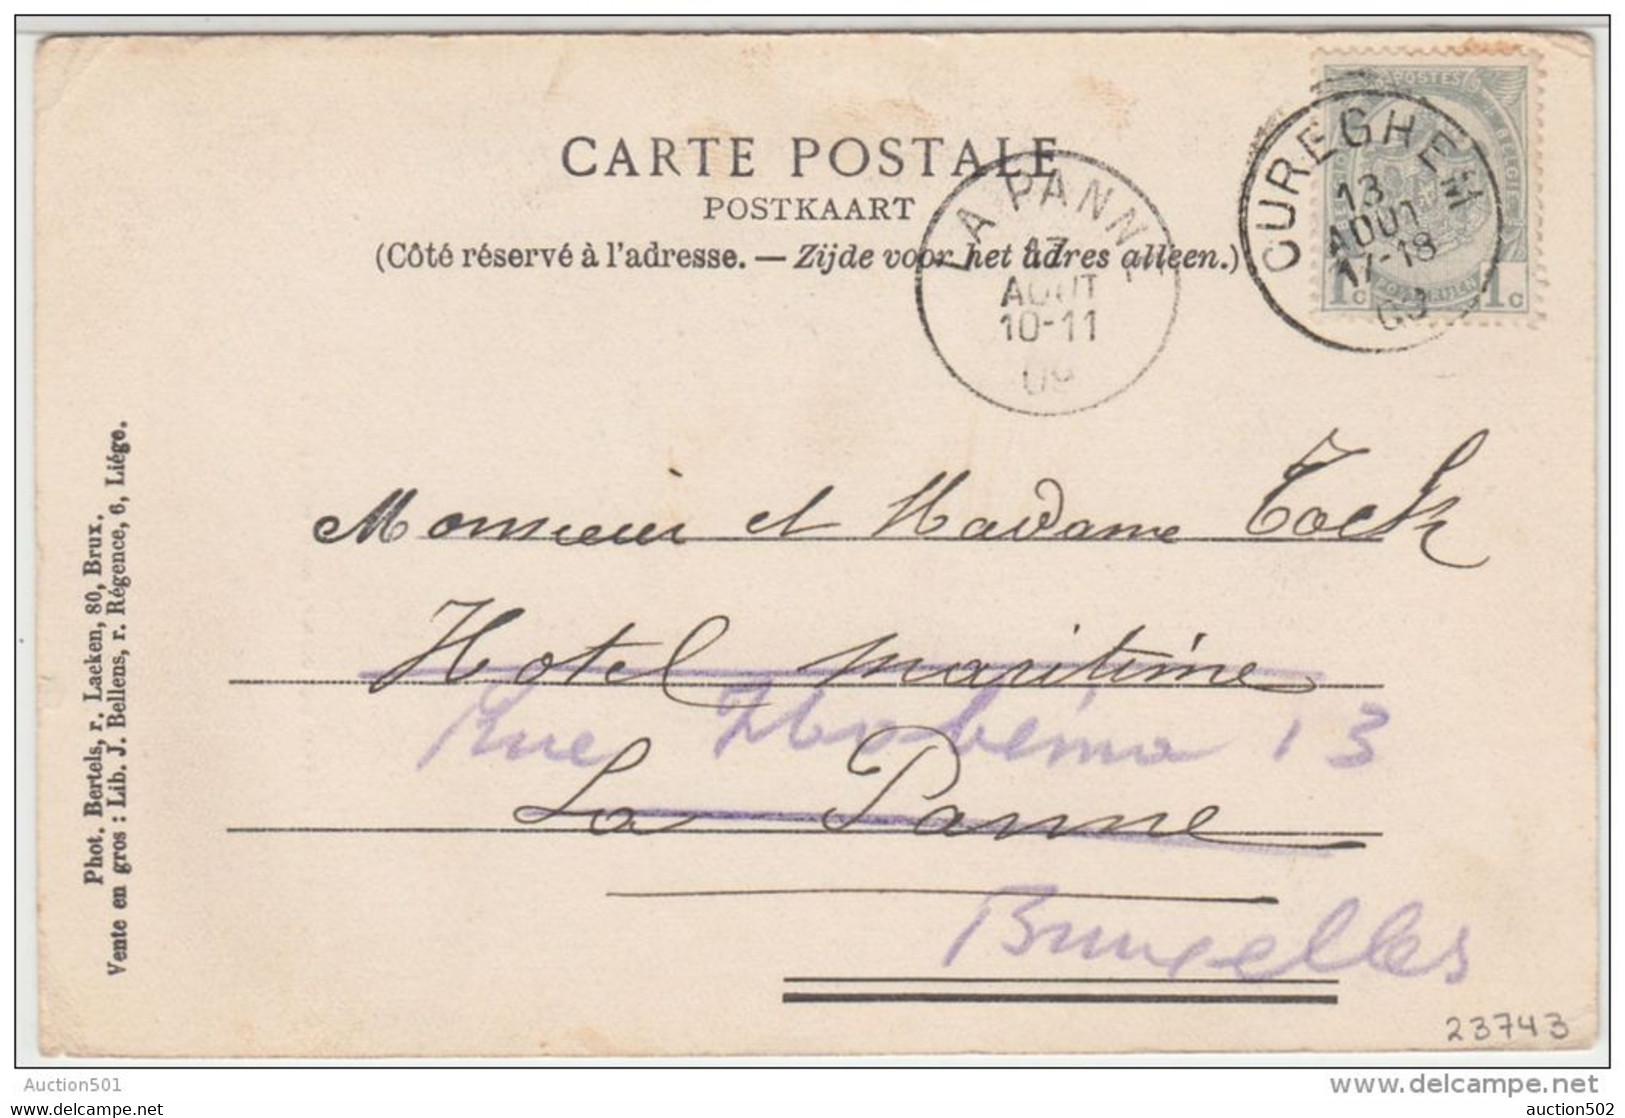 CARTE POSTALE
POSTKAART
(Côté réservé à l'adresse. — Zijde voor het adres alleen.)
POSTES
1c 1c
CUREGHEM
13
AOUT
17-18
09
LA PANNE
AOUT
10-11
09
Monsieur et Madame Tock
Hotel maritime
Rue 13
La Panne
Bruxelles
Phot. Bertels, r. Laeken, 80, Brux.
Vente en gros : Lib. J. Bellens, r. Régence, 6, Liége.
23743
Auction501
www.delcampe.net
auction502
auction502